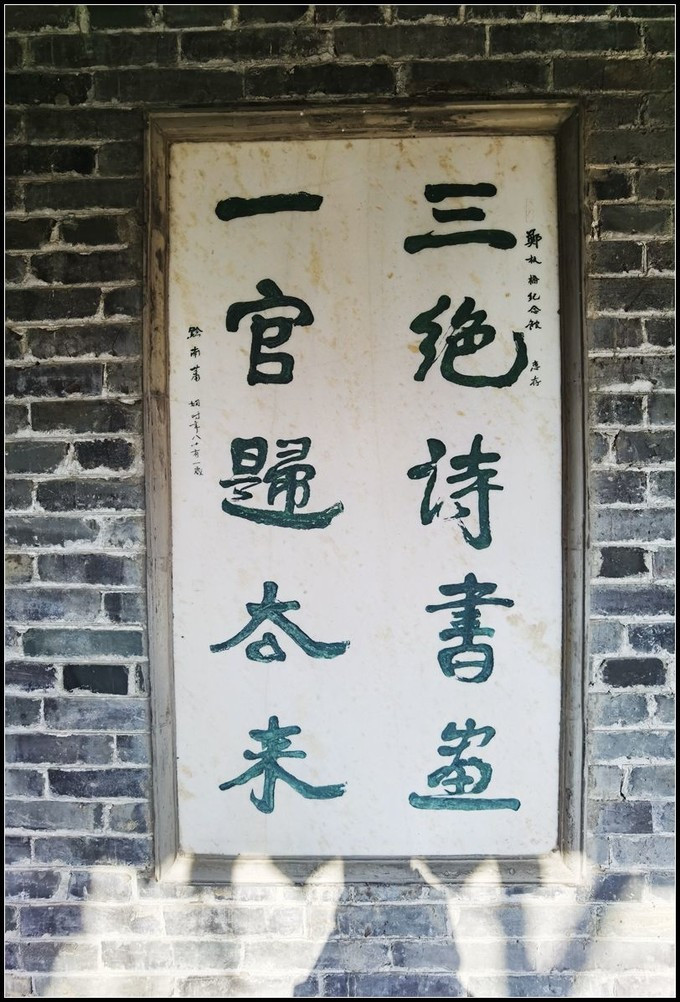 鄭板橋纪念館 惠存
三绝诗書畫
一官歸去来
黔南萧娴时年八十有一歲